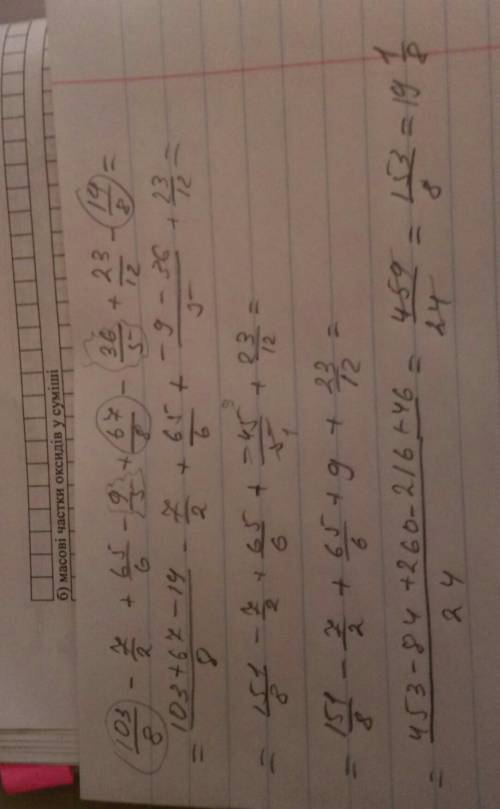 б) масові частки оксидів у суміші
103/8 - 7/2 + 65/6 - 9/5 + 67/8 - 36/5 + 23/12 - 19/8 =
= (103+67-19)/8 - 7/2 + 65/6 + (-9-36)/5 + 23/12 =
= 151/8 - 7/2 + 65/6 + -45 9/5 1 + 23/12 =
= 151/8 - 7/2 + 65/6 + 9 + 23/12 =
= (453-84+260-216+46)/24 = 459/24 = 153/8 = 19 1/8